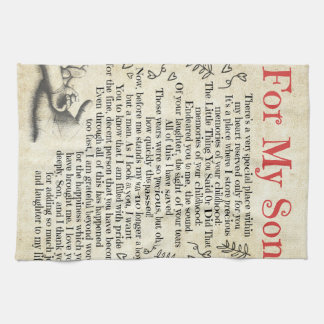 For My Son
There's a very special place within
my heart reserved only for you
It's a place where I store precious
memories of your childhood:
The Little Things You Said Or Did That
Endeared you to me, the sound
Of your laughter, the sight of your tears
All of this I have saved
Those years were so precious, but oh,
how quickly they passed!
Now, before me stands my no longer a boy
but a man. As I look at you, I want
You to know that I am filled with pride
for the fine, decent person that you have become
Even through all of this has happened
too fast, I am grateful beyond words
for the happiness which you
have brought me. I love you
deeply, and I thank you
for adding so much
and laughter to my life